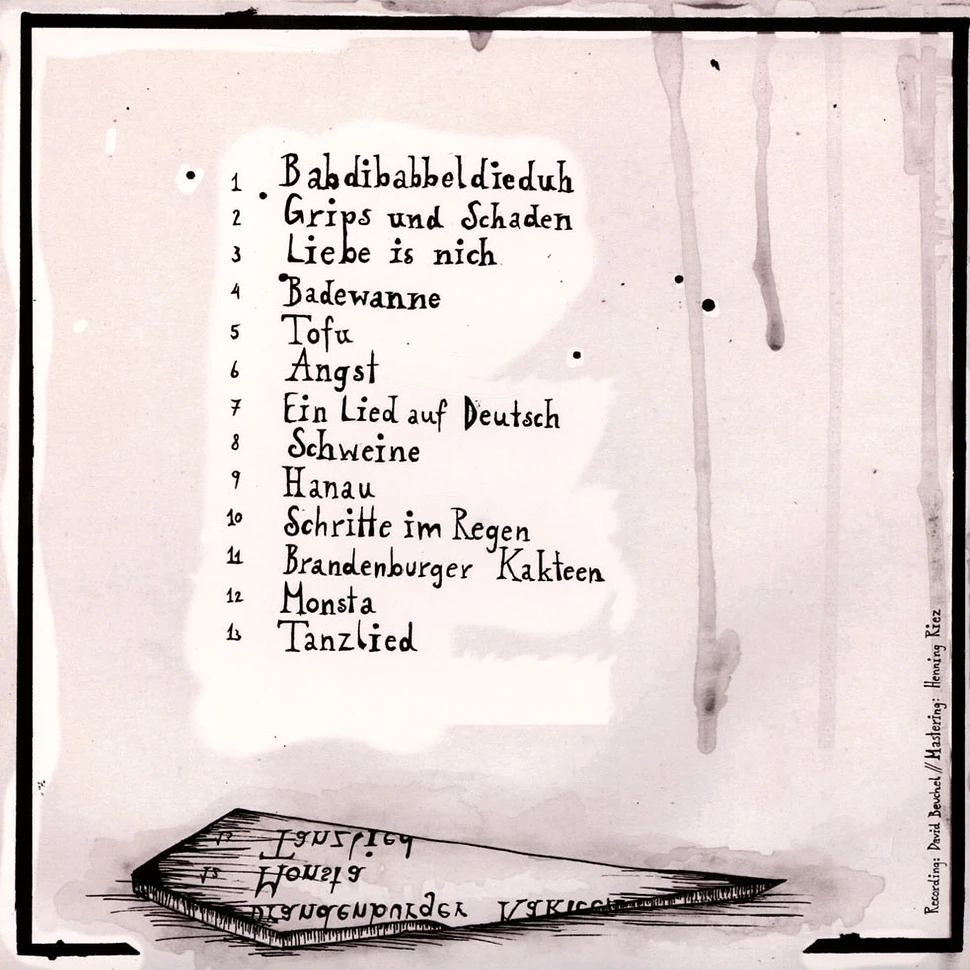 1 Babdibabbeldieduh
2 Grips und Schaden
3 Liebe is nich
4 Badewanne
5 Tofu
6 Angst
7 Ein Lied auf Deutsch
8 Schweine
9 Hanau
10 Schritte im Regen
11 Brandenburger Kakteen
12 Monsta
13 Tanzlied
Recording: David Beuchel // Mastering: Henning Riez
13 Tanzlied
12 Monsta
Brandenburger Kakteen